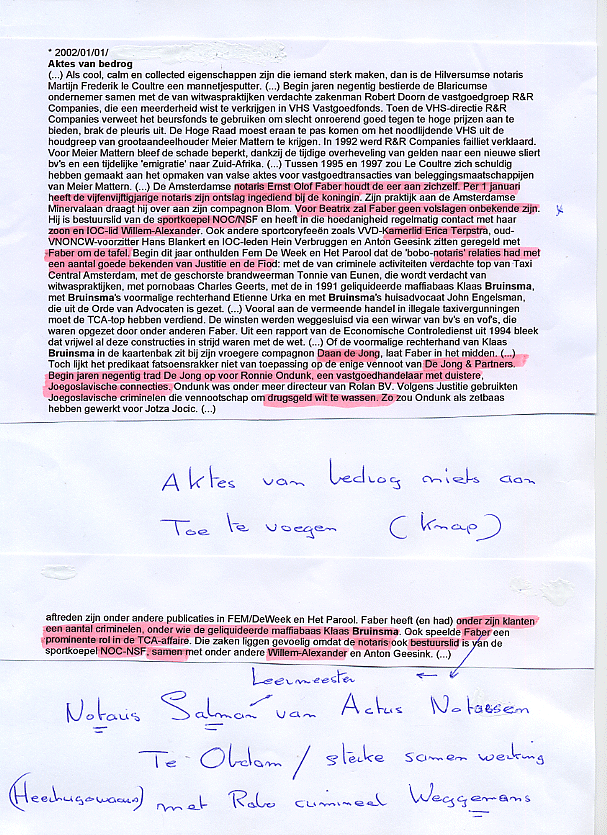 * 2002/01/01/
Aktes van bedrog
(...) Als cool, calm en collected eigenschappen zijn die iemand sterk maken, dan is de Hilversumse notaris
Martijn Frederik le Coultre een mannetjesputter. (...) Begin jaren negentig bestierde de Blaricumse
ondernemer samen met de van witwaspraktijken verdachte zakenman Robert Doorn de vastgoedgroep R&R
Companies, die een meerderheid wist te verkrijgen in VHS Vastgoedfonds. Toen de VHS-directie R&R
Companies verweet het beursfonds te gebruiken om slecht onroerend goed tegen te hoge prijzen aan te
bieden, brak de pleuris uit. De Hoge Raad moest eraan te pas komen om het noodlijdende VHS uit de
houdgreep van grootaandeelhouder Meier Mattern te krijgen. In 1992 werd R&R Companies failliet verklaard.
Voor Meier Mattern bleef de schade beperkt, dankzij de tijdige overheveling van gelden naar een nieuwe sliert
bv's en een tijdelijke 'emigratie' naar Zuid-Afrika. (...) Tussen 1995 en 1997 zou Le Coultre zich schuldig
hebben gemaakt aan het opmaken van valse aktes voor vastgoedtransacties van beleggingsmaatschappijen
van Meier Mattern. (...) De Amsterdamse notaris Ernst Olof Faber houdt de eer aan zichzelf. Per 1 januari
heeft de vijfenvijftigjarige notaris zijn ontslag ingediend bij de koningin. Zijn praktijk aan de Amsterdamse
Minervalaan draagt hij over aan zijn compagnon Blom. Voor Beatrix zal Faber geen volslagen onbekende zijn.
Hij is bestuurslid van de sportkoepel NOC/NSF en heeft in die hoedanigheid regelmatig contact met haar
zoon en IOC-lid Willem-Alexander. Ook andere sportcoryfeeën zoals VVD-Kamerlid Erica Terpstra, oud-
VNONCW-voorzitter Hans Blankert en IOC-leden Hein Verbruggen en Anton Geesink zitten geregeld met
Faber om de tafel. Begin dit jaar onthulden Fem De Week en Het Parool dat de 'bobo-notaris' relaties had met
een aantal goede bekenden van Justitie en de Fiod: met de van criminele activiteiten verdachte top van Taxi
Central Amsterdam, met de geschorste brandweerman Tonnie van Eunen, die wordt verdacht van
witwaspraktijken, met pornobaas Charles Geerts, met de in 1991 geliquideerde maffiabaas Klaas Bruinsma,
met Bruinsma's voormalige rechterhand Etienne Urka en met Bruinsma's huisadvocaat John Engelsman,
die uit de Orde van Advocaten is gezet. (...) Vooral aan de vermeende handel in illegale taxivergunningen
moet de TCA-top hebben verdiend. De winsten werden weggesluisd via een wirwar van bv's en vof's, die
waren opgezet door onder anderen Faber. Uit een rapport van de Economische Controledienst uit 1994 bleek
dat vrijwel al deze constructies in strijd waren met de wet. (...) Of de voormalige rechterhand van Klaas
Bruinsma in de kaartenbak zit bij zijn vroegere compagnon Daan de Jong, laat Faber in het midden. (...)
Toch lijkt het predikaat fatsoensrakker niet van toepassing op de enige vennoot van De Jong & Partners.
Begin jaren negentig trad De Jong op voor Ronnie Ondunk, een vastgoedhandelaar met duistere,
Joegoslavische connecties. Ondunk was onder meer directeur van Rolan BV. Volgens Justitie gebruikten
Joegoslavische criminelen die vennootschap om drugsgeld wit te wassen. Zo zou Ondunk als zetbaas
hebben gewerkt voor Jotza Jocic. (...)
Aktes van bedrog niets aan
Toe te voegen (Knap)
aftreden zijn onder andere publicaties in FEM/DeWeek en Het Parool. Faber heeft (en had) onder zijn klanten
een aantal criminelen, onder wie de geliquideerde maffiabaas Klaas Bruinsma. Ook speelde Faber een
prominente rol in de TCA-affaire. Die zaken liggen gevoelig omdat de notaris ook bestuurslid is van de
sportkoepel NOC-NSF, samen met onder andere Willem-Alexander en Anton Geesink. (...)
Leermeester
Notaris Salman van Actus Notarissen
Te Obdam / sterke samen werking
(Heerhugowaard) met Rabo crimineel Weggemans